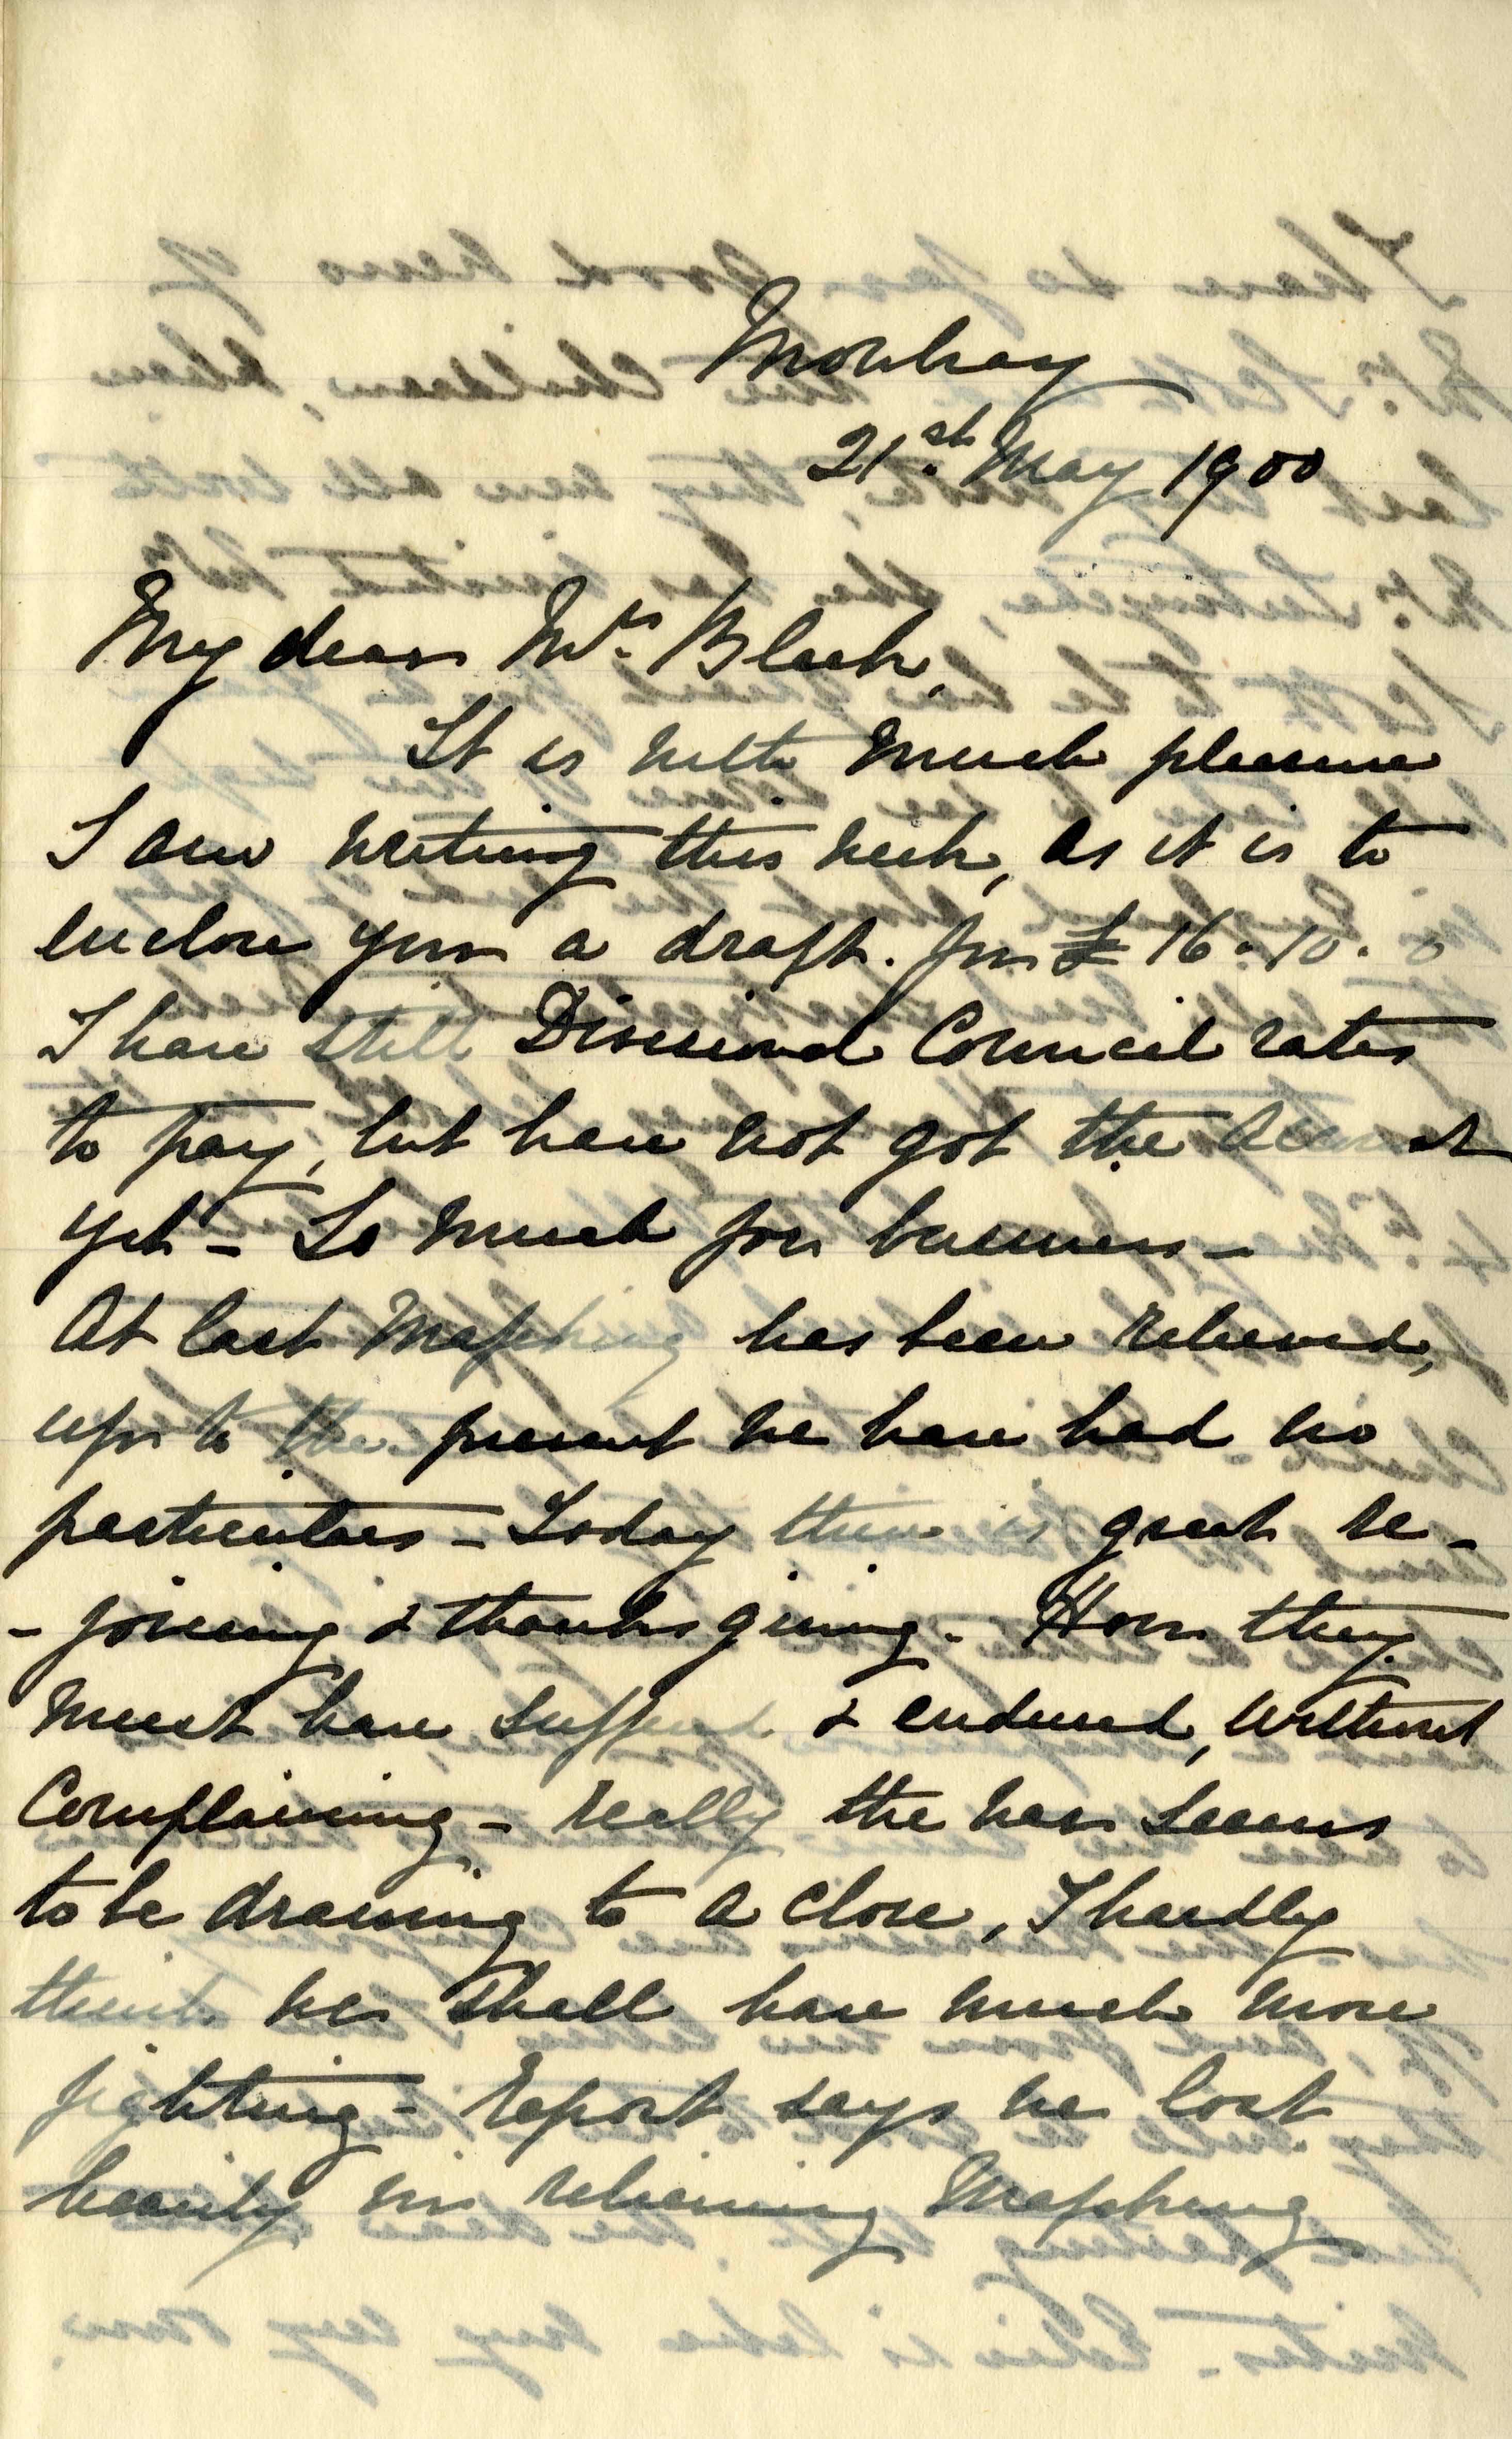 Mowbray
21st May 1900
My dear Mrs Bleek,
It is with much pleasure
I am writing this week, as it is to
enclose you a draft. for £ 16. 10. 0
I have still Divisional Council rates
to pay, but have not got the account
yet - So much for business -
At last Mafeking has been relieved,
up to the present we have had no
particulars - Today there is great re-
- joicing & thanksgiving. How they
must have suffered & endured, without
complaining - really the war seems
to be drawing to a close, I hardly
think we shall have much more
fighting - report says we lost
heavily in relieving Mafeking